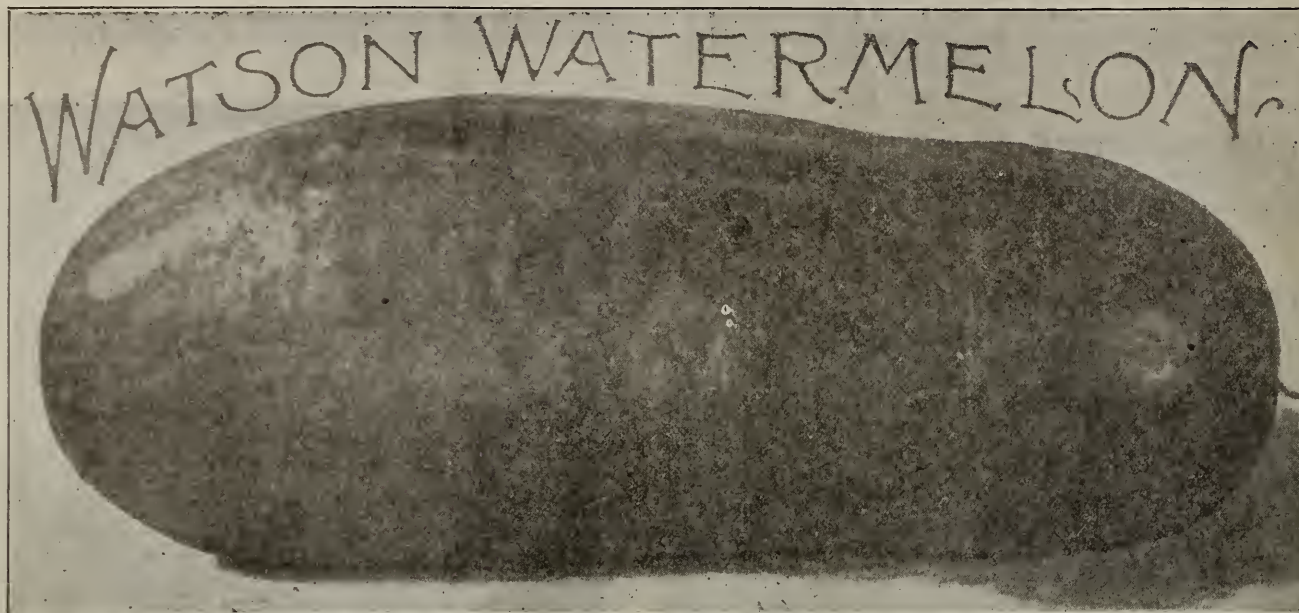 WATSON WATERMELON